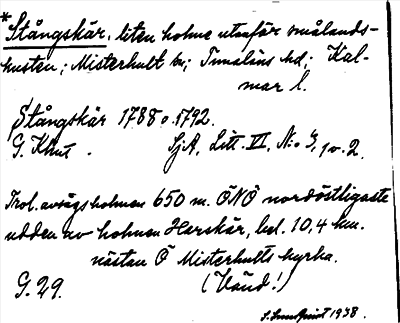 *Stångskär, liten holme utanför smålands-
kusten; Misterhult sn; Tunaläns hd; Kal-
mar l.
Stångskär 1788 o. 1792.
G. Klint. SjA, Litt. VI, N:o 3, 1 o. 2.
Trol. avsågs holmen 650 m. ÖNÖ nordöstligaste
udden av holmen Harskär, bel. 10,4 km.
nästan Ö Misterhults kyrka.
G. 29. (Vänd!)
1938.